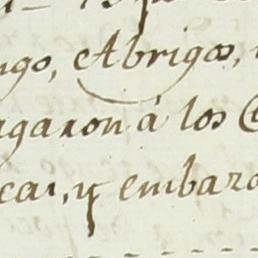 ngo, e Abrigos,
agaron á los
car, y embar